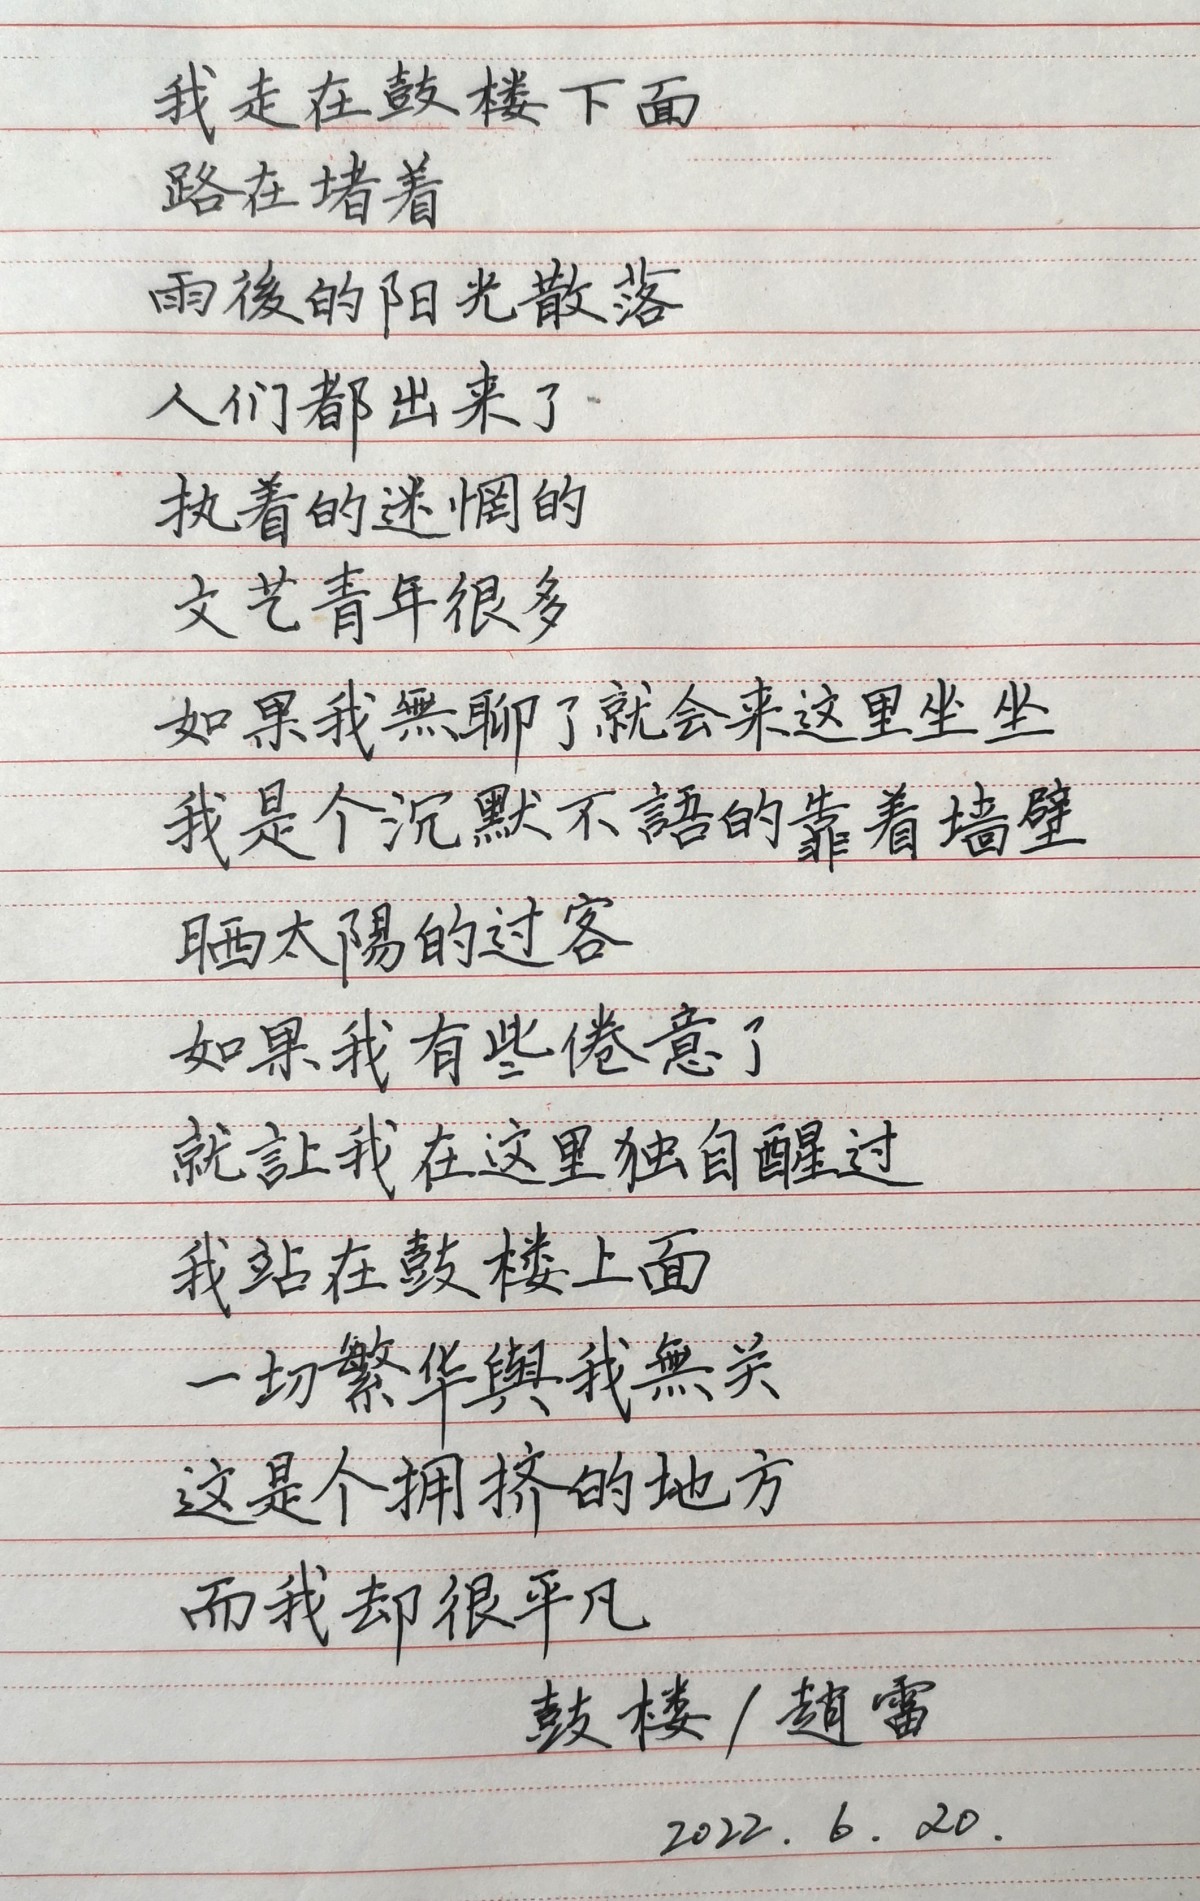 我走在鼓楼下面
路在堵着
雨後的阳光散落
人们都出来了
执着的迷惘的
文艺青年很多
如果我無聊了就会来这里坐坐
我是个沉默不語的靠着墙壁
晒太陽的过客
如果我有些倦意了
就让我在这里独自醒过
我站在鼓楼上面
一切繁华與我無关
这是个拥挤的地方
而我却很平凡
鼓楼/趙雷
2022.6.20.